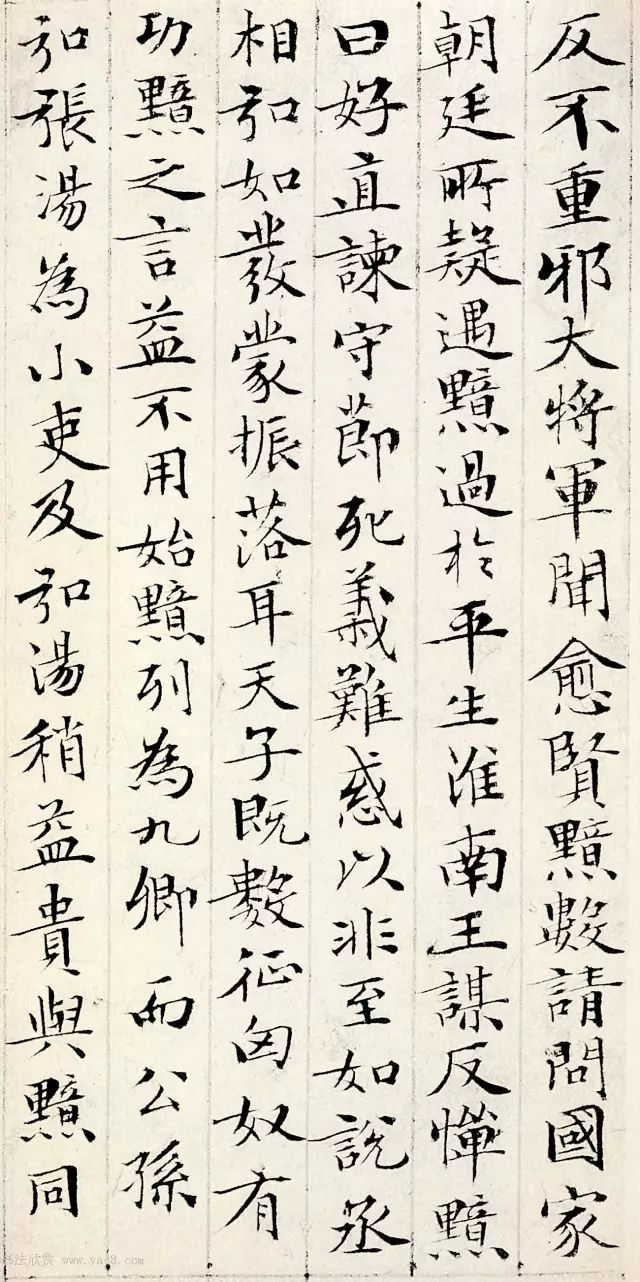 反不重邪大將軍聞愈賢黯數請問國家
朝廷所疑遇黯過於平生淮南王謀反憚黯
曰好直諫守節死義難惑以非至如說丞
相弘如發蒙振落耳天子既數征匈奴有
功黯之言益不用始黯列為九卿而公孫
弘張湯為小吏及弘湯稍益貴與黯同
书法欣赏 www.yac8.com